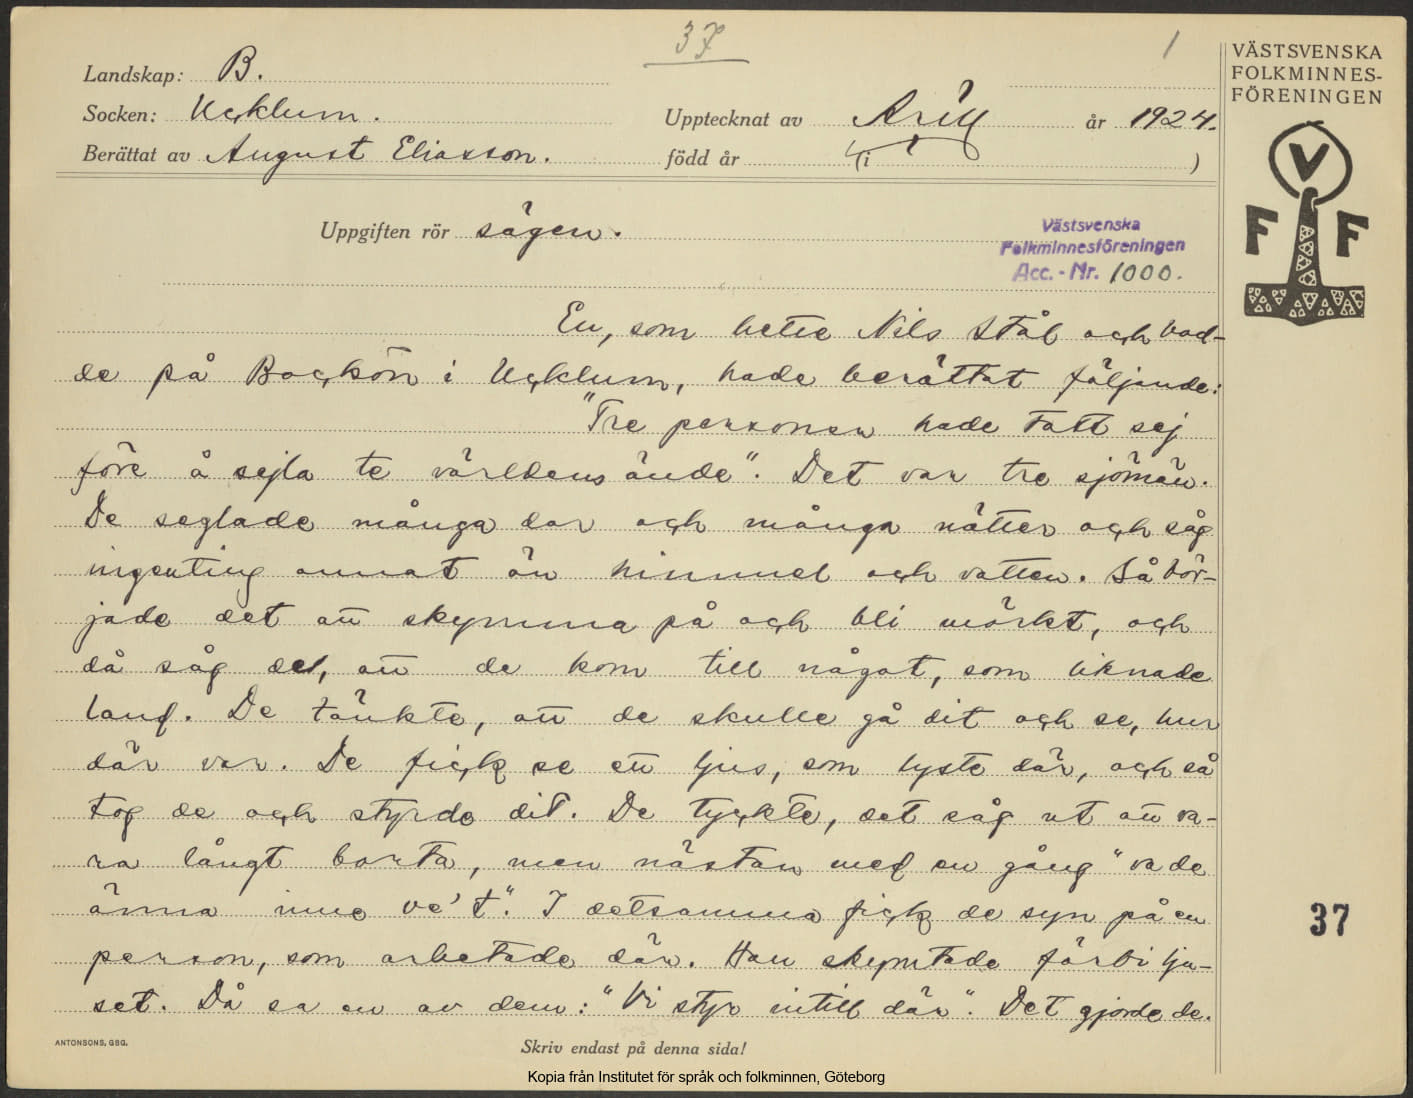 37
1
Landskap: B.
Socken: Ucklum.
Upptecknat av Arill år 1924.
Berättat av August Eliasson.
född år (i )
VÄSTSVENSKA
FOLKMINNES-
FÖRENINGEN
V
F F
Uppgiften rör sägen.
Västsvenska
Folkminnesföreningen
Acc.-Nr. 1000.
En, som hette Nils Stål och bod-
de på Backön i Ucklum, hade berättat följande:
"Tre personer hade tatt sej
före å sejla te världens ände". Det var tre sjömän.
De seglade många dar och många nätter och såg
ingenting annat än himmel och vatten. Så bör-
jade det att skymma på och bli mörkt, och
då såg de, att de kom till något, som liknade
land. De tänkte, att de skulle gå dit och se, hur
där var. De fick se ett ljus, som lyste där, och så
tog de och styrde dit. De tyckte, det såg ut att va-
ra långt borta, men nästan med en gång "va de
änna inne ve't". I detsamma fick de syn på en
person, som arbetade där. Han skymtade förbi lju-
set. Då sa en av dem: "Vi styr intill där". Det gjorde de.
37
ANTONSONS, GBG.
Skriv endast på denna sida!
Kopia från Institutet för språk och folkminnen, Göteborg